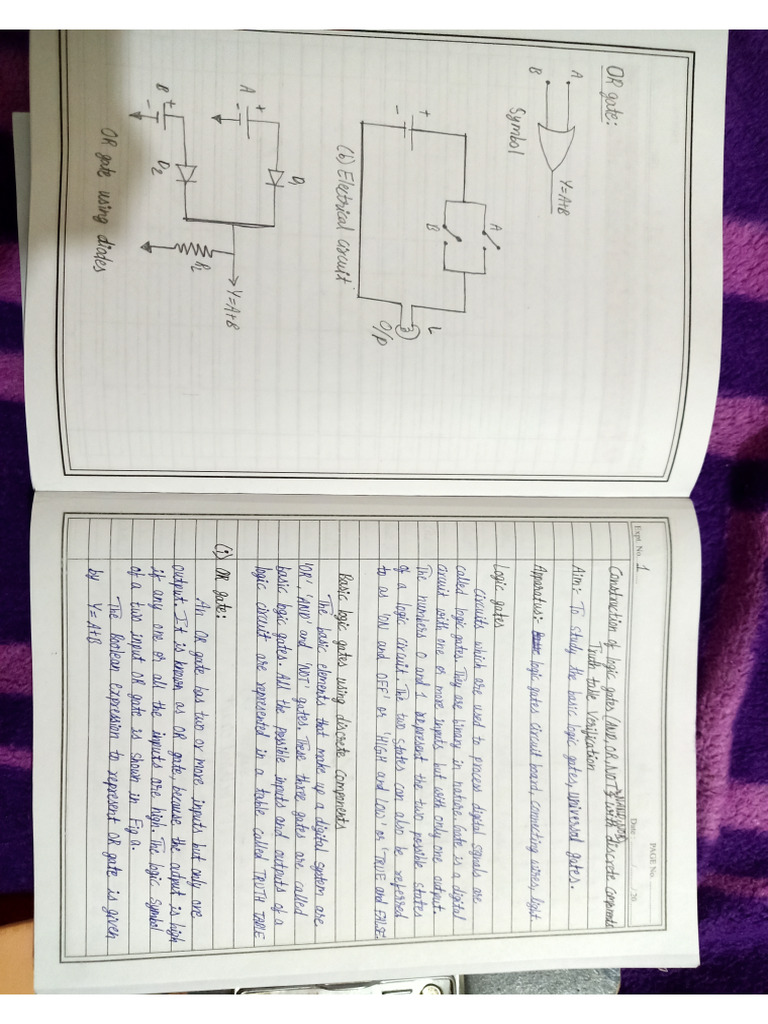 OR gate:
A
B
Y=A+B
Symbol
+
-
A
B
L
O/P
(b) Electrical circuit
A
+
-
D1
B
+
-
D2
RL
Y=A+B
OR gate using diodes
PAGE No.
Expt. No. 1
Date / / 20
Construction of logic gates (AND, OR, NOT) with discrete components
Truth table Verification
Aim:- To study the basic logic gates, universal gates.
Apparatus:- logic gates circuit board, connecting wires, light
Logic gates
Circuits which are used to process digital signals are
called logic gates. They are binary in nature. Gate is a digital
circuit with one or more inputs but with only one output.
The numbers 0 and 1 represent the two possible states
of a logic circuit. The two states can also be referred
to as 'ON and OFF' or 'HIGH and LOW' or 'TRUE and FALSE'
Basic logic gates using discrete components
The basic elements that make up a digital system are
'OR', 'AND' and 'NOT' gates. These three gates are called
basic logic gates. All the possible inputs and outputs of a
logic circuit are represented in a table called TRUTH TABLE
(i) OR gate:
An OR gate has two or more inputs but only one
output. It is known as OR gate, because the output is high
if any one or all the inputs are high. The logic symbol
of a two input OR gate is shown in Fig a.
The Boolean expression to represent OR gate is given
by Y = A+B